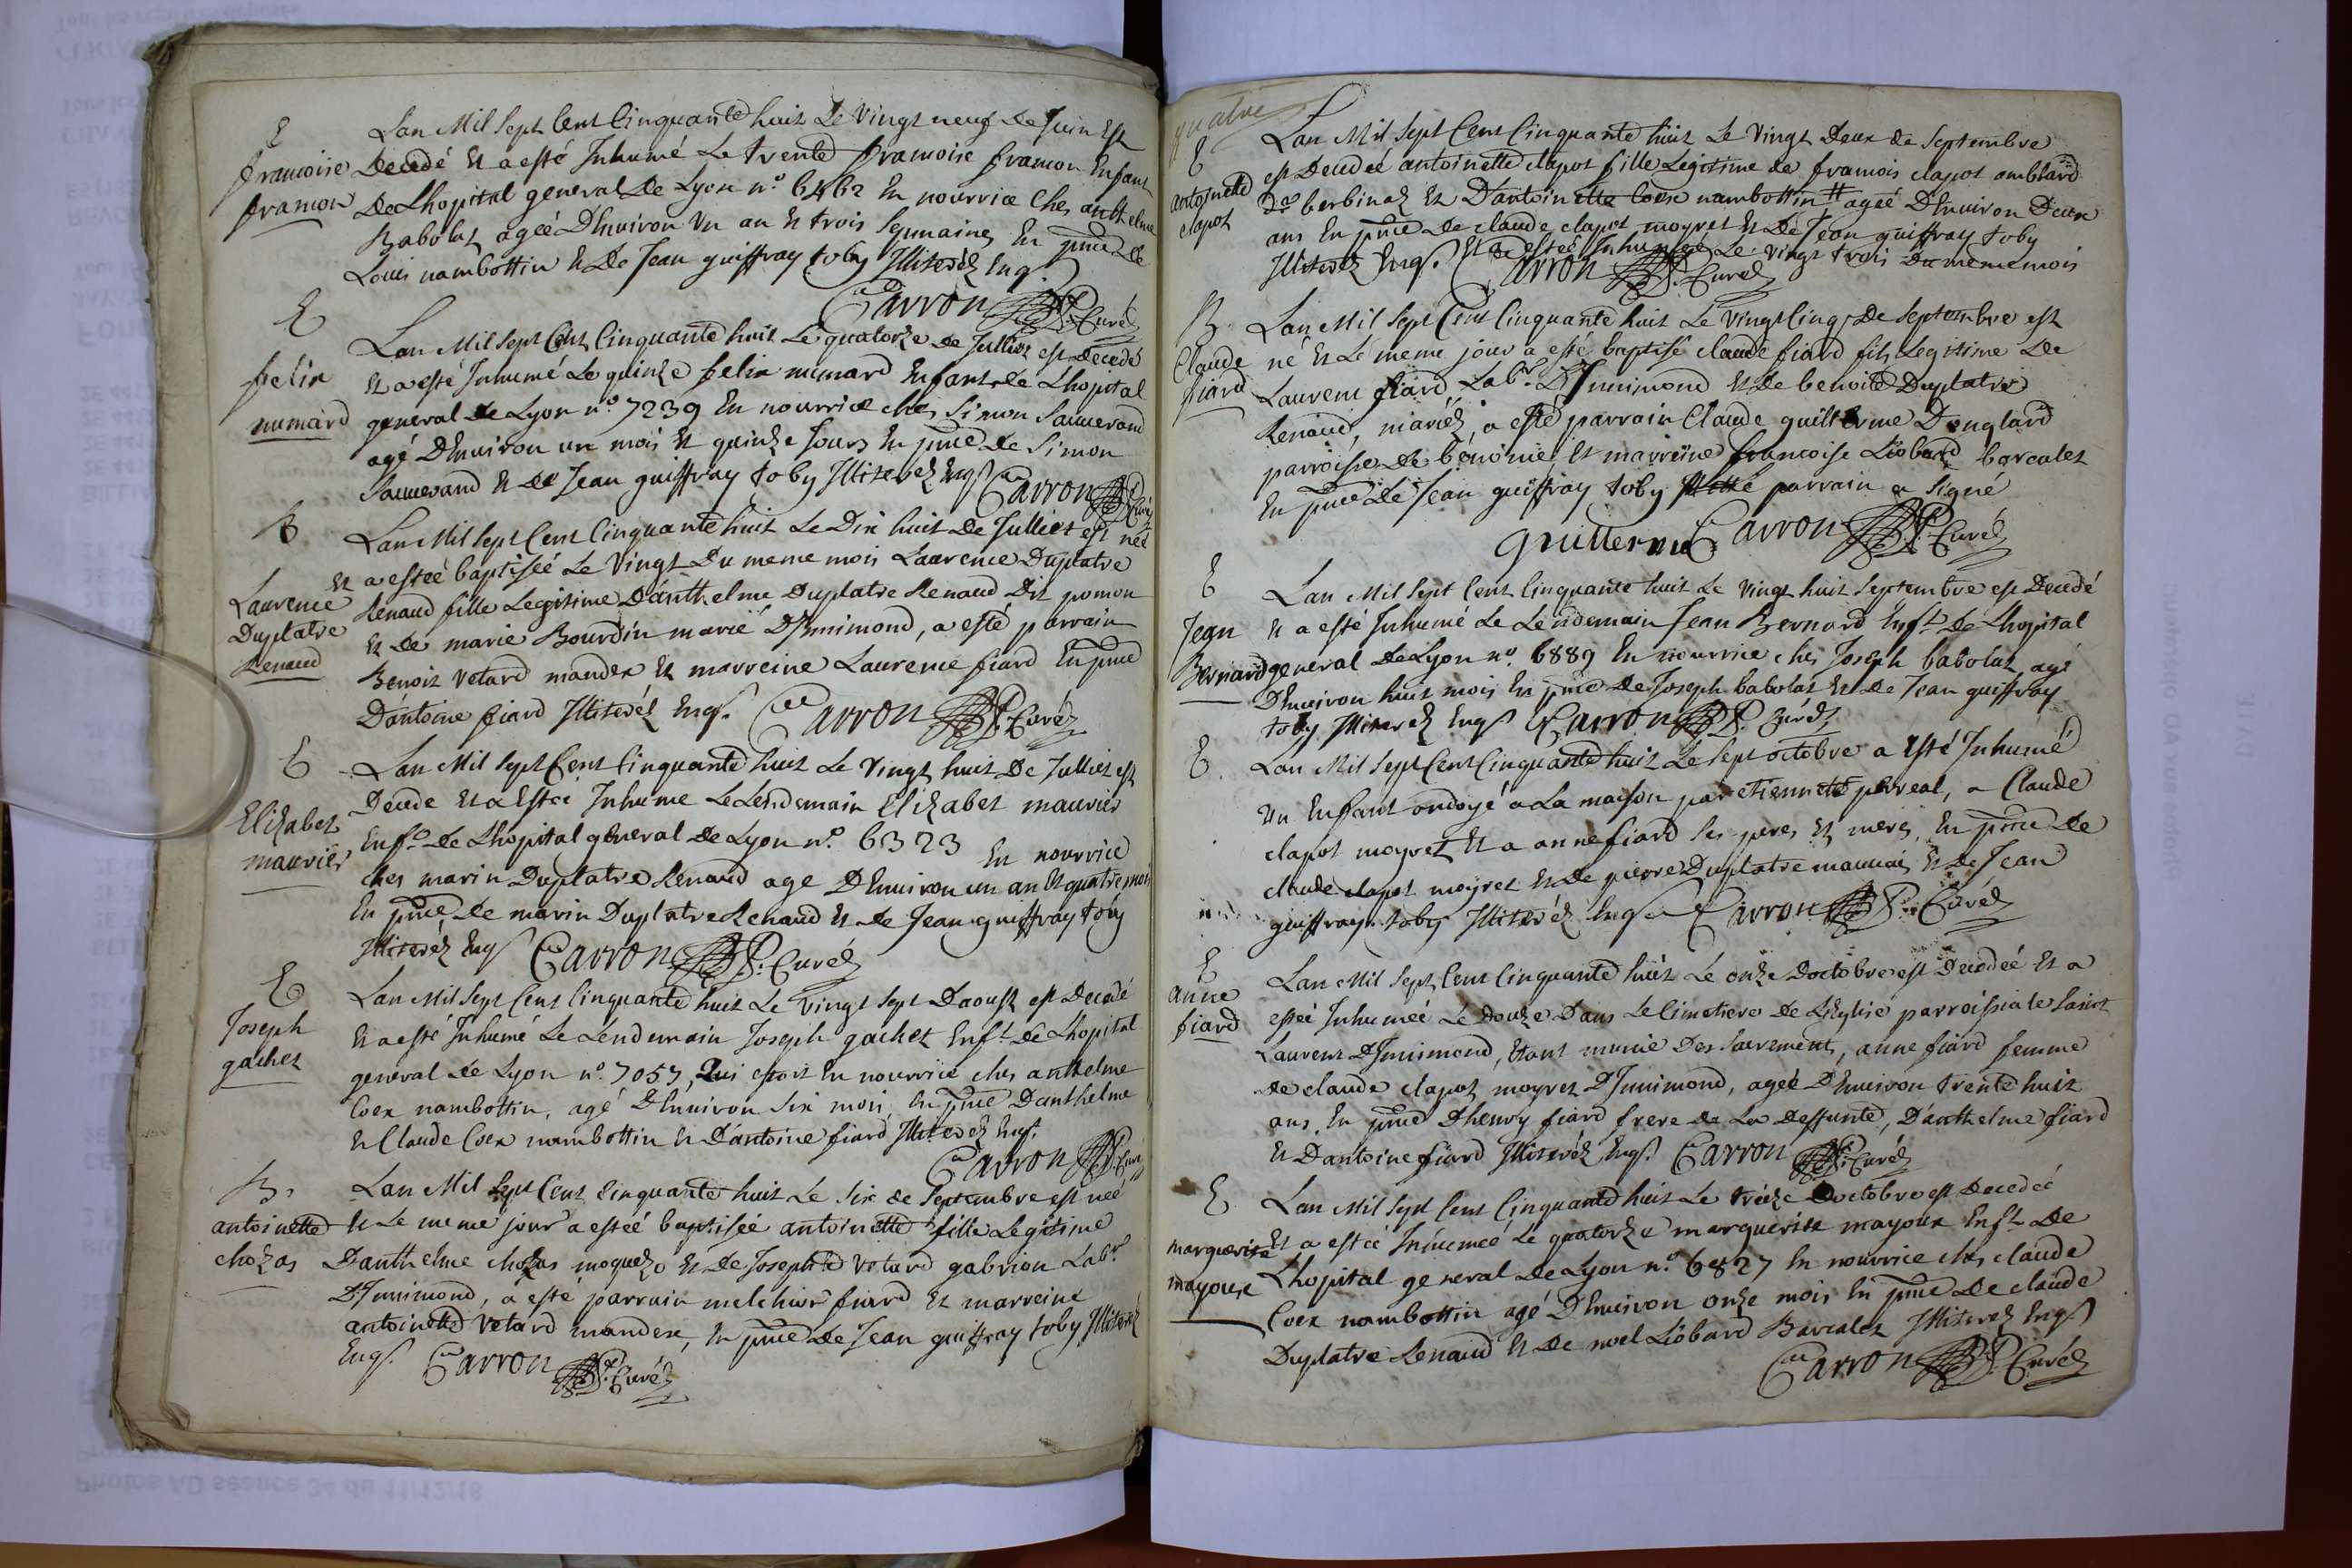 E
francoise
framon
Lan Mil Sept Cent Cinquante huit Le vingt neuf de Juin Est
Decedé Et a esté Inhumé Le trente francoise framon Enfant
De Lhopital general de Lyon n.º 6462 En nourrice Ches anthelme
Babolat, ageé D'Environ un an Et trois Semaines En pnce de
Louis nambottin Et De Jean guiffray toby Illiterés Enq.
Carron Curé
E
felix
numard
Lan Mil Sept Cent Cinquante huit Le quatorze de Julliet est decedé
Et a esté Inhumé Le quinze felix numard Enfant de Lhopital
general de Lyon n.º 7239 En nourrice ches Simon Sauverand
agé D'Environ un mois Et quinze Jours En pnce de Simon
Sauverand Et de Jean guiffray toby Illiterés Enq. Carron Curé
B
Laurence
Duplatre
Renaud
Lan Mil Sept Cent Cinquante huit Le Dix huit de Julliet est neé
Et a esteé baptiseé Le Vingt Du meme mois Laurence Duplatre
Renaud fille Legitime D'anthelme Duplatre Renaud Dit pomon
Et de marie Bourdin marié D'Innimond, a esté parrain
Benoit Vetard mandex Et marreine Laurence fiard En pnce
D'antoine fiard Illiterés Enq. Carron Curé
E
Elizabet
mauvies
Lan Mil Sept Cent Cinquante huit Le Vingt huit De Julliet est
Decede Et a Esteé Inhume Le Lendemain Elizabet mauvies
Enft. De Lhopital general de Lyon n.º 6323 En nourrice
ches marin Duplatre Renaud age D'Environ un an Et quatre mois
En pnce De marin Duplatre Renaud Et de Jean guiffray toby
Illiterés Enq. Carron Curé
E
Joseph
gachet
Lan Mil Sept Cent Cinquante huit Le Vingt Sept Daoust est Decedé
Et a esté Inhumé Le Lendemain Joseph gachet Enft. De Lhopital
general de Lyon n.º 7057, Qui etoit En nourrice ches anthelme
Coex nambottin, agé D'Environ Six mois, En pnce D'anthelme
Et Claude Coex nambottin Et D'antoine fiard Illiterés Enq.
Carron Curé
B.
antoinette
chozas
Lan Mil Sept Cent Cinquante huit Le Six de Septembre est neé
Et Le meme jour a esteé baptiseé antoinette fille Legitime
D'anthelme chozas moquezo Et De Josephte Vetard gabrion Labr.
D'Innimond, a esté parrain melchior fiard Et marreine
antoinette Vetard mandex, En pnce de Jean guiffray toby Illiterés
Enq. Carron Curé
quatre
E
antoinette
clapot
Lan Mil Sept Cent Cinquante huit Le Vingt Deux de Septembre
est Decedeé antoinette clapot fille Legitime de francois clapot amblard
De berbinaz Et D'antoinette Coex nambottin # ageé D'Environ Deux
ans En pnce De claude clapot moyret Et De Jean guiffray toby
Illiterés Enq. # Et a esteé Inhumeé Le Vingt trois du meme mois
Carron Curé
B.
Claude
fiard
Lan Mil Sept Cent Cinquante huit Le Vingt Cinq De Septembre est
né Et Le meme jour a esté baptisé claude fiard fils Legitime De
Laurent fiard Labr. D'Innimond Et de benoite Duplatre
Renaud, mariés, a esté parrain Claude guillerme Douglard
parroisse de benonie, Et marreine francoise Liobard barcalet
En pnce de Jean guiffray toby Illité parrain a Signé
guillerme Carron Curé
E
Jean
Bernard
Lan Mil Sept Cent Cinquante huit Le Vingt huit Septembre est Decedé
Et a esté Inhumé Le Lendemain Jean Bernard Enft. De Lhopital
general De Lyon n.º 6889 En nourrice ches Joseph babolat, agé
D'Environ huit mois En pnce de Joseph babolat Et De Jean guiffray
toby Illiterés Enq. Carron Curé
E.
Lan Mil Sept Cent Cinquante huit Le Sept octobre a Esté Inhumé
Un Enfant ondoyé a La maison par etiennette perreal, a Claude
clapot moyret Et a anne fiard Ses peres Et meres, En pnce De
claude clapot moyret Et De pierre Duplatre mauvais Et de Jean
guiffray toby Illiterés Enq. Carron Curé
E
anne
fiard
Lan Mil Sept Cent Cinquante huit Le onze Doctobre est Decedeé Et a
esteé Inhumeé Le Douze Dans Le Cimetiere De Leglise parroissiale Saint
Laurent D'Innimond, Etant munie Des Sacrements, anne fiard femme
de claude clapot moyret D'Innimond, ageé D'Environ trente huit
ans, En pnce D'henry fiard frere de La Deffunte, D'anthelme fiard
Et D'antoine fiard Illiterés Enq. Carron Curé
E.
marguerite
mayoux
Lan Mil Sept Cent Cinquante huit Le treize Doctobre est Decedeé
Et a esteé Inhumeé Le quatorze marguerite mayoux Enft. De
Lhopital general de Lyon n.º 6827 En nourrice ches claude
Coex nambottin agé D'Environ onze mois En pnce De claude
Duplatre Renaud Et de noel Liobard Barcalet Illiterés Enq.
Carron Curé
Photos AD séance 34 du 11/12/18